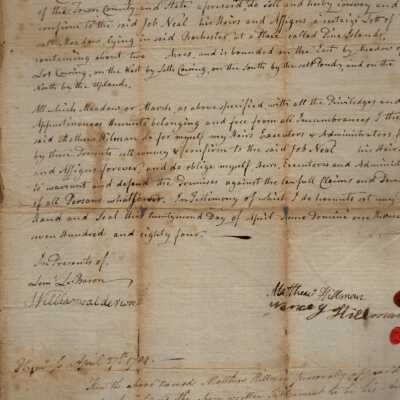 of the same County and State aforesaid do sell and hereby convey and
confirm to the said Job Neal his Heirs and Assigns a certain Lot of
salt Meadow, lying in said Rochester at a place called Pine Islands,
containing about two Acres, and is bounded on the East by Meadow of
Lot Cowing, on the West by Seth Cowing, on the South by the salt Pond, and on the
North by the Uplands.
All which Meadow or Marsh as above specified with all the Priviledges and
Appurtenances thereunto belonging and free from all Incumbrances, I the
said Matthew Hilman do for myself my Heirs Executors & Administrators,
by these Presents sell convey & confirm to the said Job Neal his Heirs
and Assigns forever, and do oblige myself Heirs, Executors and Administ
to warrant and defend the Premises against the lawfull Claims and
of all Persons whatsoever. In Testimony of which I do hereunto set my
Hand and Seal this twentysecond Day of April Anno Domini one
seven Hundred and eighty four.
In Presents of.
Lem LeBaron
William
Matthew Hillman
Hillman
April 1784
Then the above named Matthew Hillman personally
the above written Instrument to be his